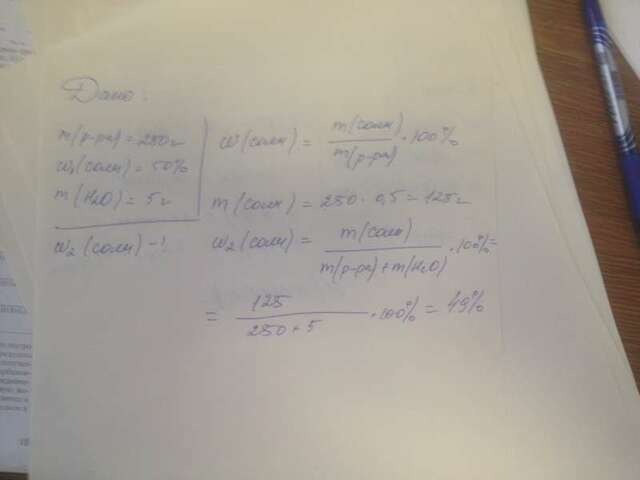 Дано:
m(р-ра) = 250 г
w₁(соли) = 50%
m(H₂O) = 5 г
w₂(соли) - ?
w(соли) = m(соли) / m(р-ра) · 100%
m(соли) = 250 · 0,5 = 125 г
w₂(соли) = m(соли) / m(р-ра) + m(H₂O) · 100% =
= 125 / 250 + 5 · 100% = 49%